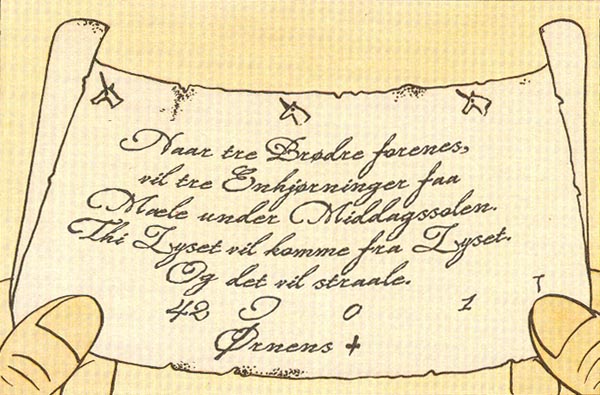 Naar tre Brødre forenes,
vil tre Enhjørninger faa
Mæle under Middagssolen.
Thi Lyset vil komme fra Lyset.
Og det vil straale.
42 0 1
Ørnens +